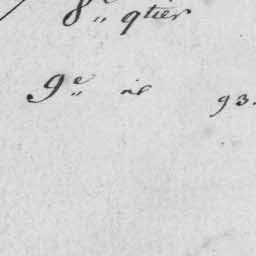 8e qtier
9e id 93.